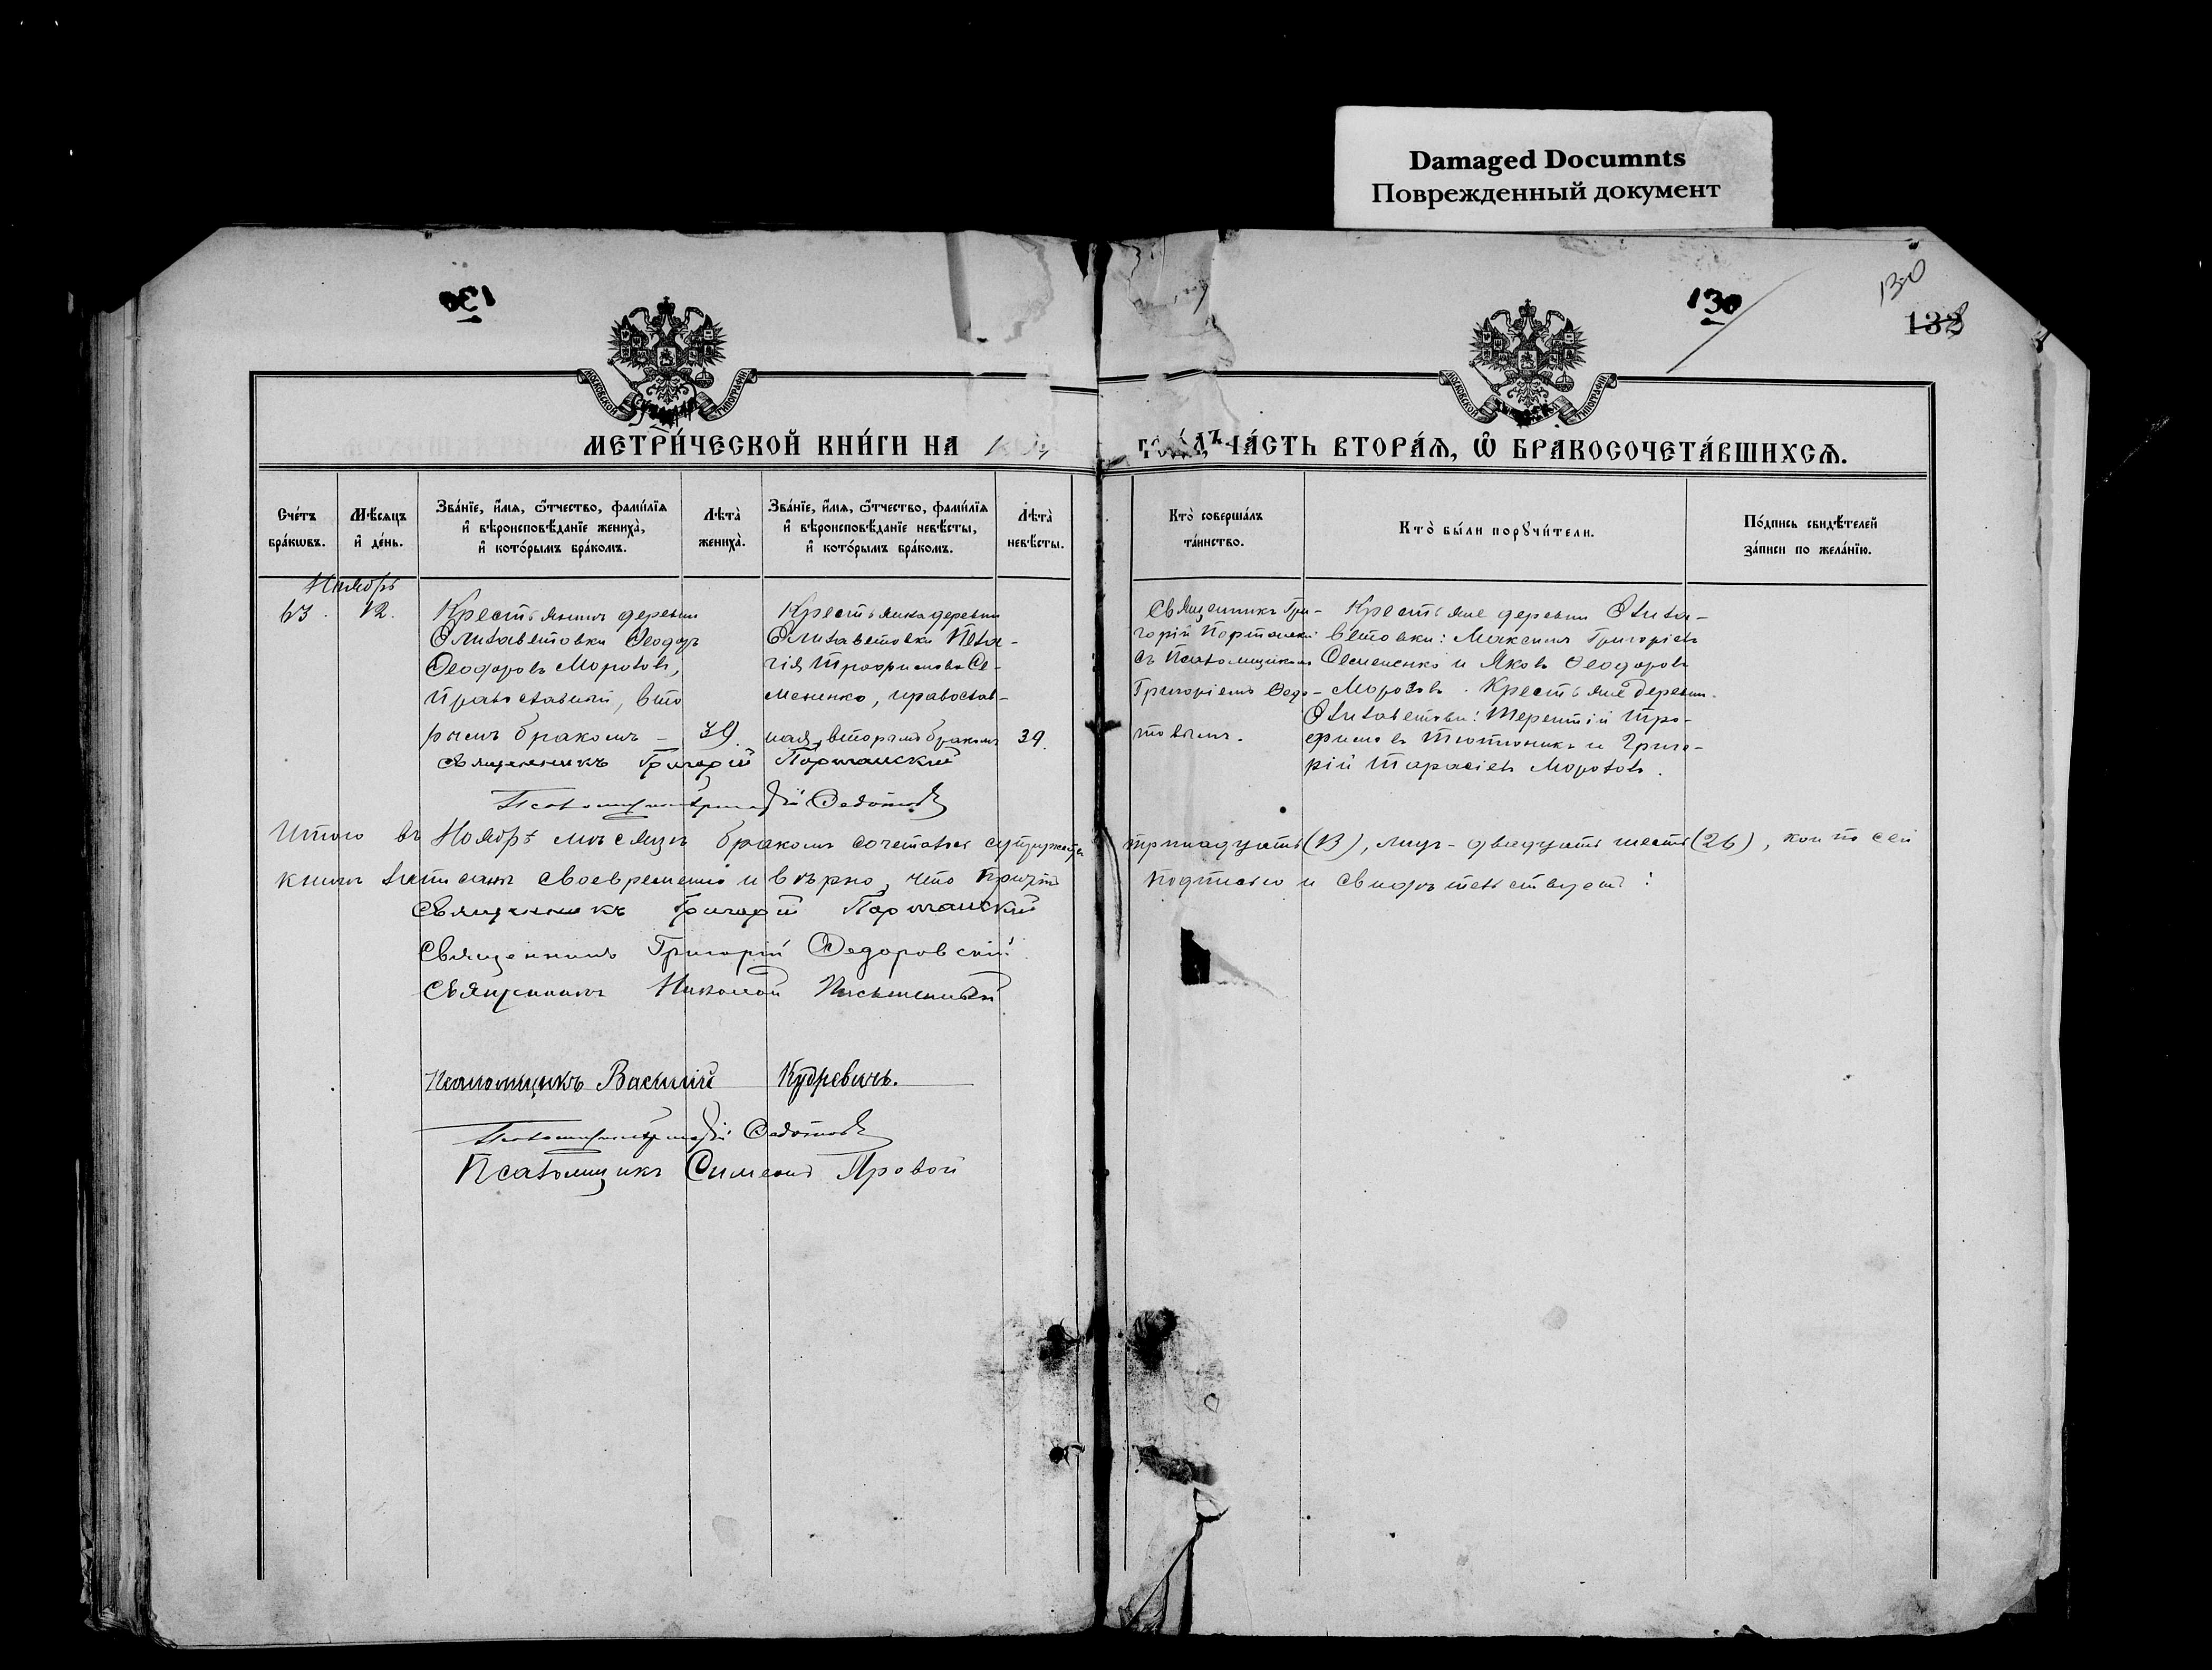 Damaged Documnts
Поврежденный документ
130
130
130
132
МОСКОВСКОЙ ТИПОГРАФІИ
МОСКОВСКОЙ ТИПОГРАФІИ
МЕТРИ́ЧЕСКОЙ КНИ́ГИ НА
ЧА́СТЬ ВТОРА́Ѧ, Ѽ БРАКОСОЧЕТА́ВШИХСѦ.
Сче́тъ бра́кѡвъ.
Мѣ́сяцъ и҆ де́нь.
Зва́нїе, и҆́мѧ, ѻ҆́тчество, фами́лїѧ и҆ вѣроисповѣ́данїе жениха̀, и҆ кото́рымъ бра́комъ.
Лѣта̀ жениха̀.
Зва́нїе, и҆́мѧ, ѻ҆́тчество, фами́лїѧ и҆ вѣроисповѣ́данїе невѣ́сты, и҆ кото́рымъ бра́комъ.
Лѣта̀ невѣ́сты.
Кто̀ соверша́лъ та́инство.
Кто̀ бы́ли порꙋчи́тели.
По́дпись свидѣ́телей за́писи по жела́нїю.
Ноябрь
63. 12.
Крестьянинъ деревни
Елизаветовки Ѳеодоръ
Ѳеодоровъ Морозовъ,
православный, вто
рымъ бракомъ – 39.
Крестьянка деревни
Елизаветовки Пела-
гія Трофимова Се-
мененко, православ-
ная, вторымъ бракомъ 39.
Священникъ Гри-
горій Портанскій
съ Псаломщикомъ
Григоріемъ Ѳедо-
товымъ.
Крестьяне деревни Елиза-
ветовки: Максимъ Григоріевъ
Семененко и Яковъ Ѳеодоровъ
Морозовъ. Крестьяне деревни
Елизаветовки: Терентій Тро-
фимовъ Тютюникъ и Григо-
рій Тарасіевъ Морозовъ.
Священникъ Григорій Портанскій
Псаломщикъ Григорій Ѳедотовъ
Итого въ Ноябрѣ мѣсяцѣ бракомъ сочеталось супружествъ тринадцать (13), лицъ – двадцать шесть (26), кои по сей
книгѣ записаны своевременно и вѣрно, что причтъ подписью и свидѣтельствуетъ:
Священникъ Григорій Портанскій
Священникъ Григорій Ѳедоровскій
Священникъ Николай
Псаломщикъ Василій Кудревичъ.
Псаломщикъ Григорій Ѳедотовъ
Псаломщикъ Симеонъ Яровой